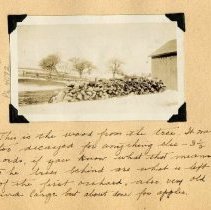 This is the wood from the tree. It was
too decayed for anything else - 3½
cords, if you know what that means
The trees behind are what is left
of the first orchard, also very old
and large but about done for apples.